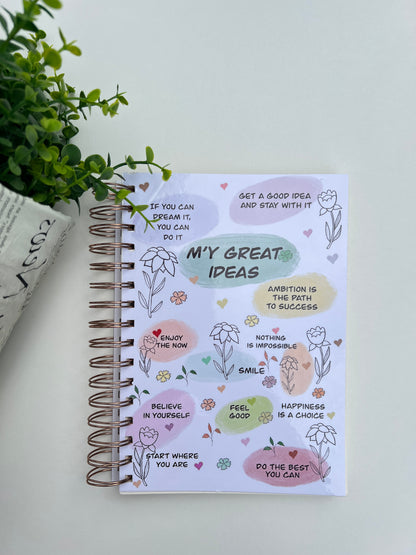 IF YOU CAN
DREAM IT,
YOU CAN
DO IT
GET A GOOD IDEA
AND STAY WITH IT
M'Y GREAT
IDEAS
AMBITION IS
THE PATH
TO SUCCESS
ENJOY
THE NOW
NOTHING
IS IMPOSSIBLE
SMILE
BELIEVE
IN YOURSELF
FEEL
GOOD
HAPPINESS
IS A CHOICE
START WHERE
YOU ARE
DO THE BEST
YOU CAN